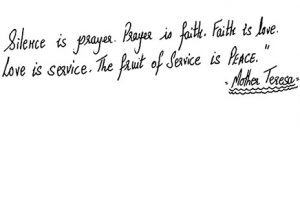 Silence is prayer. Prayer is faith. Faith is love.
Love is service. The fruit of Service is PEACE."
- Mother Teresa -